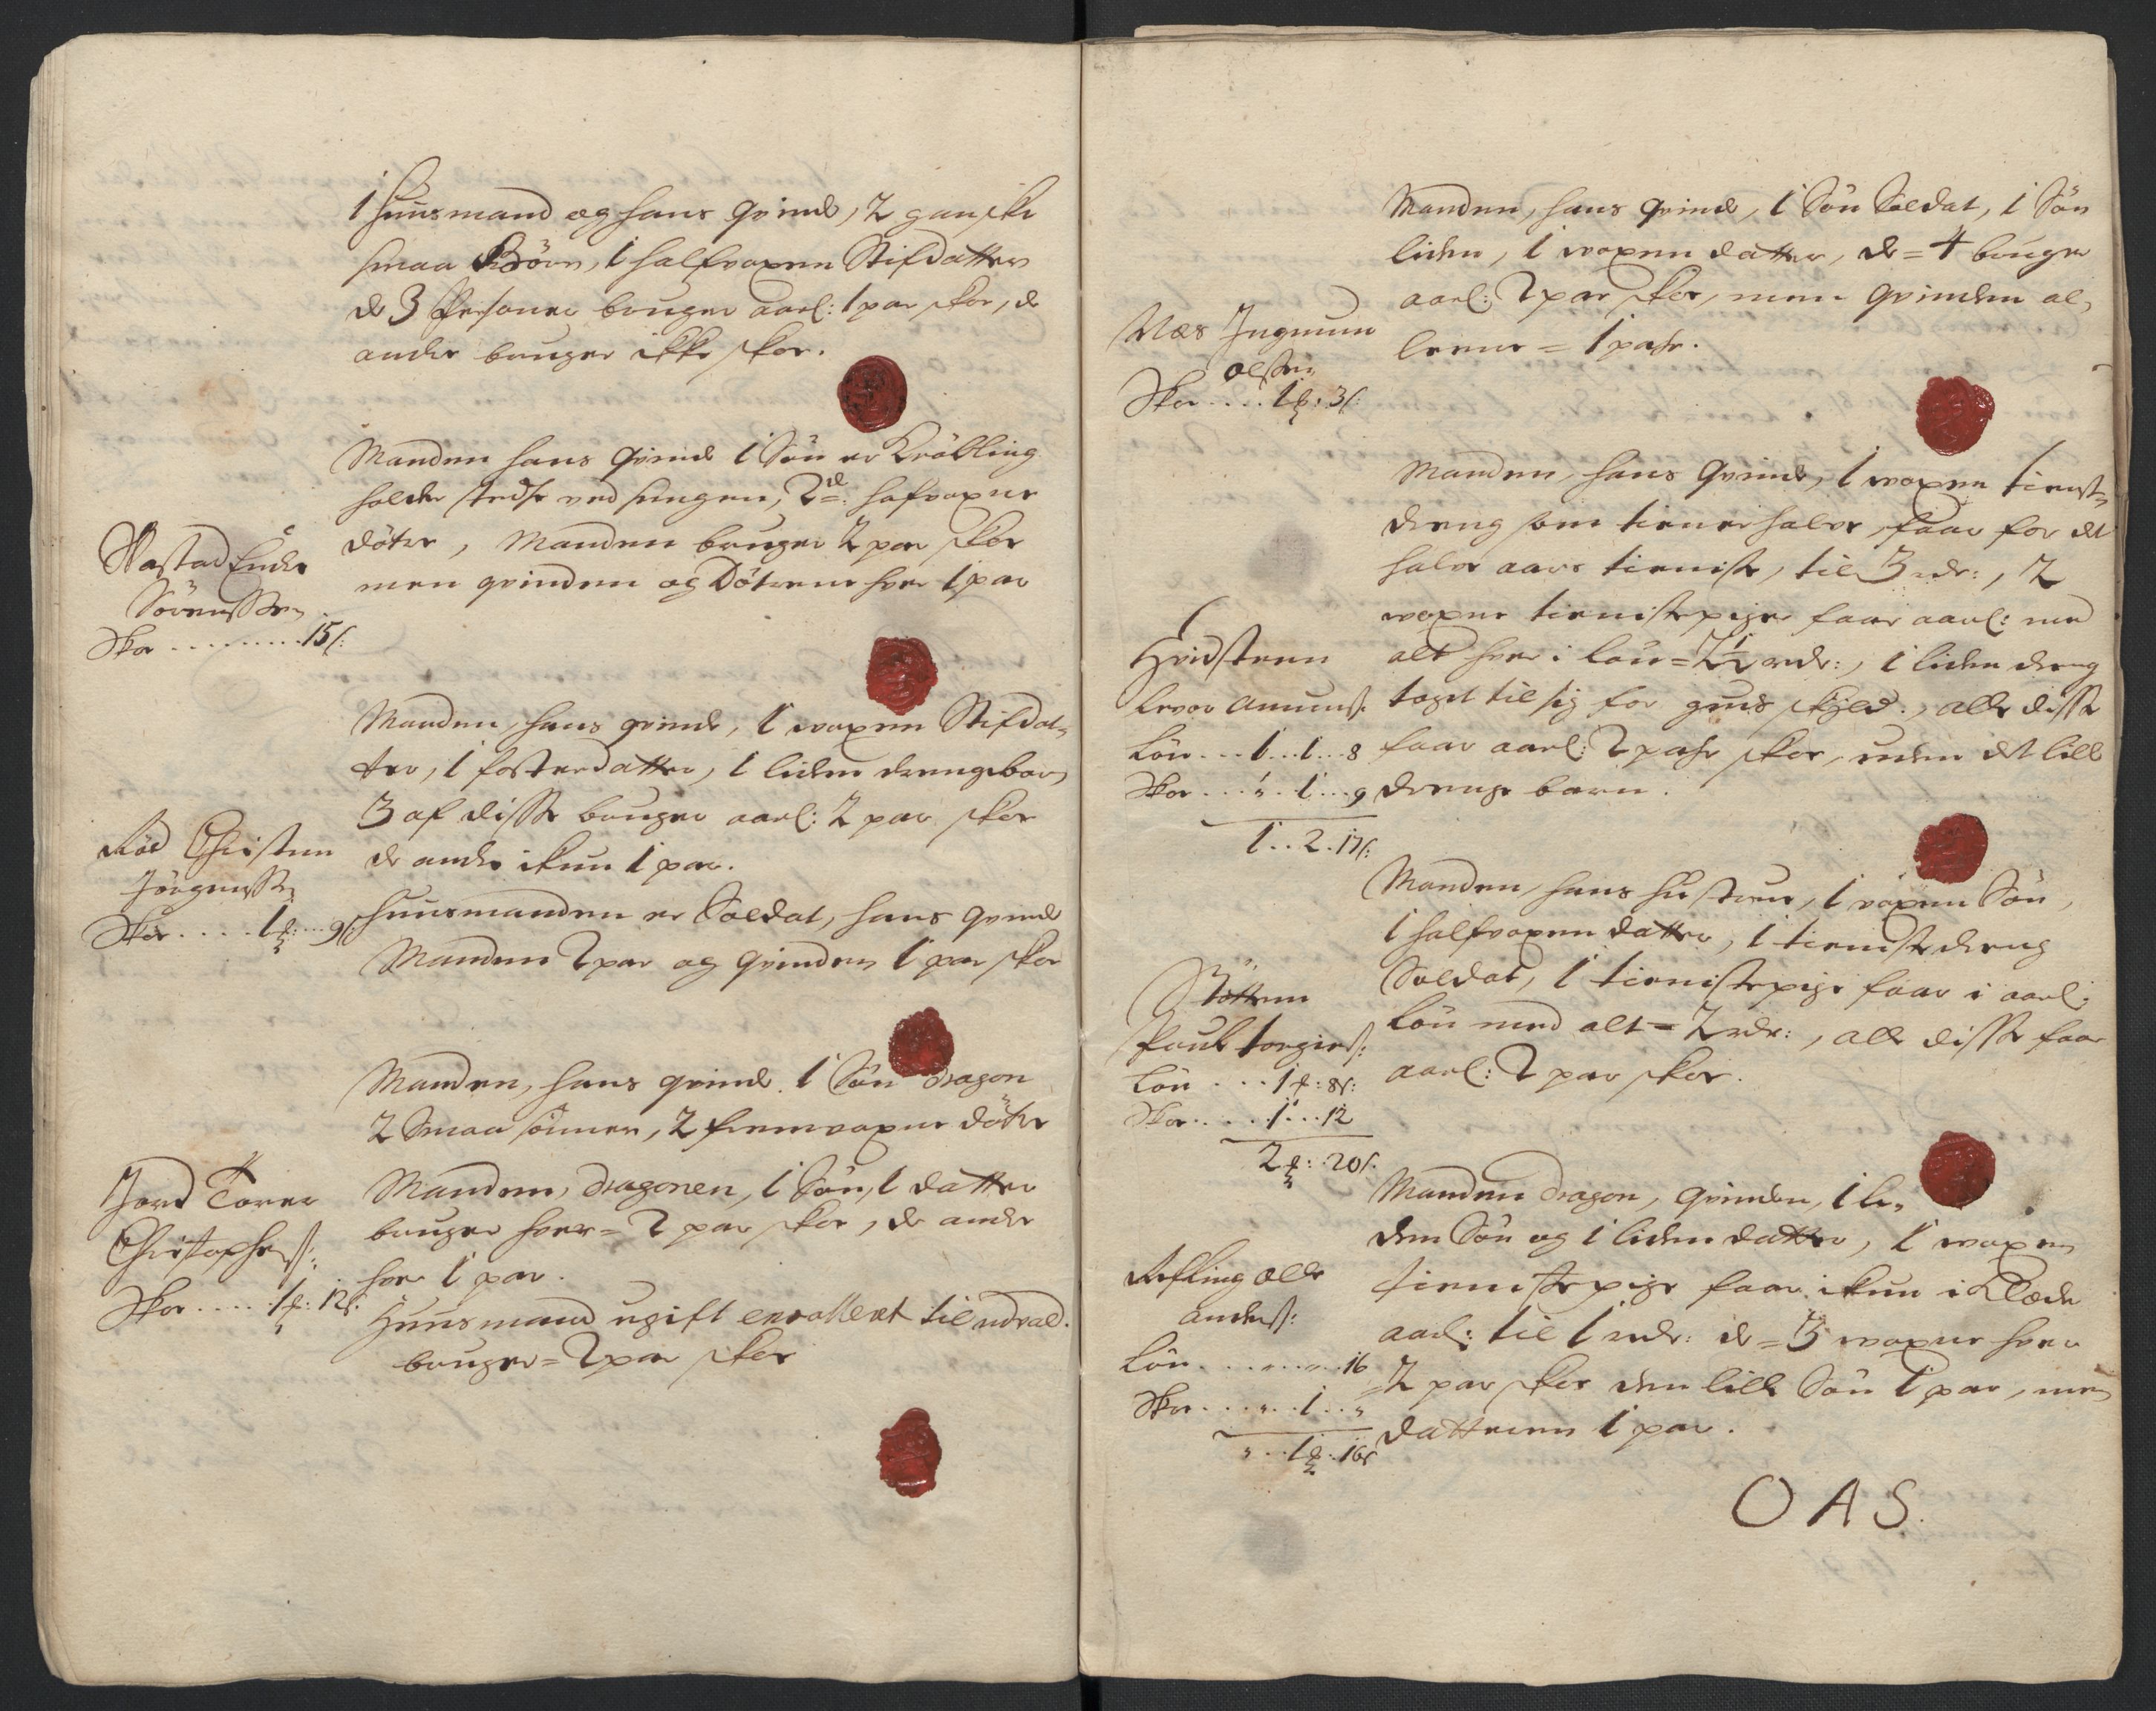 1 Huusmand og hans qvinde, 2 ganske
smaa Børn, 1 halfvoxen Stifdatter
de 3 Personer bruger aarl: 1 par skoe, de
andre bruger ikke skoe.
Manden hans qvinde 1 Søn er Krøbling
holder stedse ved sengen, 2de halfvoxne
døtre, Manden bruger 2 par skoe
men qvinden og Døtrene hver 1 par
Endre
Sørenssen
Skoe ......... 15s:
Manden, hans qvinde, 1 voxen Stifdat-
ter, 1 fosterdatter, 1 liden drengebarn
3 af disse bruger aarl: 2 par skoe
de andre ikun 1 par.
Rød Christen
Jørgenssen
Skoe .... 1 ... 9s:
Huusmanden er Soldat, hans qvinde
Manden 2 par og qvinden 1 par skoe
Manden, hans qvinde. 1 Søn dragon
2 Smaa sønner, 2 fremvoxne døtre
Manden, dragonen, 1 Søn, 1 datter
bruger hver = 2 par skoe, de andre
hver 1 par.
Jord Torer
Christophers:
Skoe .... 1 : 12s.
Huusmand ugift enrolleret til udvald.
bruger = 2 par skoe
Manden, hans qvinde, 1 Søn Soldat, 1 Søn
liden, 1 woxen datter, de = 4 bruger
aarl: 2 par skoe, men qvinden al-
leene = 1 pahr.
Næs Ingmun
olssen
Skoe .... 1 : 3s:
Manden, hans qvinde, 1 woxen tienst-
dreng som tiener halve, faar for det
halve aars tieniste, til 3 rdr:, 2
woxne tienistepiger faar aarl: med
alt hver i løn = 2½ rdr:, 1 liden dreng
taget til sig for guds skyld., alle disse
faar aarl: 2 pahr skoe, uden det lille
drenge barn.
Hvidsteen
Levor Amunds:
Løn ... 1 .. 1 .. 8
Skoe ... " .. 1 .. 9
1 .. 2 . 17s:
Manden, hans hustrue, 1 voxen Søn,
1 halfvoxen datter, 1 tienistedreng
Soldat, 1 tienistepige faar i aarl:
Løn med alt = 2 rdr:, alle disse faar
aarl: 2 par skoe.
Støttem
Poul torgiers:
Løn ... 1 : 8s:
Skoe .... 1 ... 12
2 : 20s.
Manden dragon, qvinden, 1 li-
den Søn og 1 liden datter, 1 woxen
tienistepige faar ikun i Klæde
aarl: til 1 rdr: de = 3 woxne hver
2 par skoe den lille Søn 1 par, men
datteren 1 par.
Refling Olle
Anders:
Løn ... " .. " .. 16
Skoe ... " .. 1 .. "
" .. 1 : 16s
O A S.